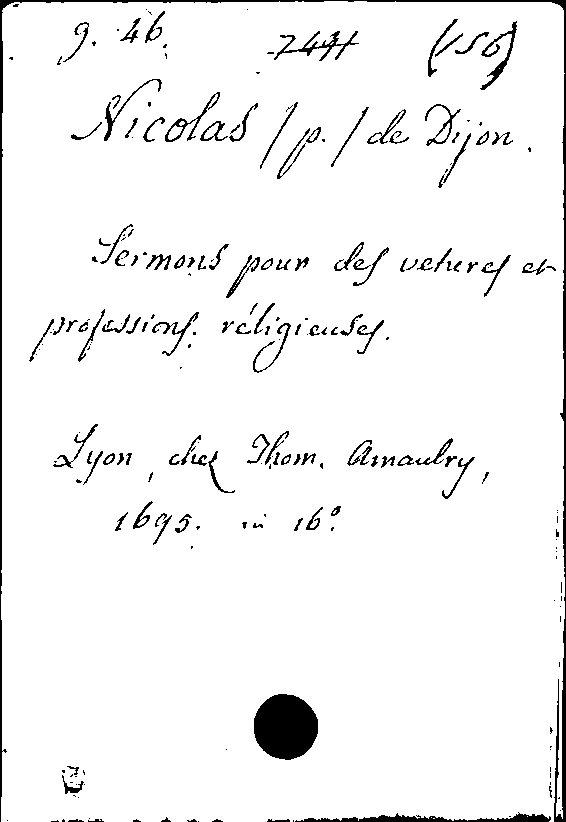 g. 46. 7431 (156)
Nicolas / p. / de Dijon.
Sermons pour des vetures et
professions réligieuses.
Lyon, chez Thom. Amaulry,
1695. in 16°.